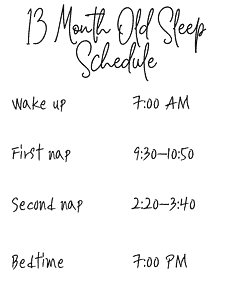 13 Month Old Sleep
Schedule
Wake up 7:00 AM
First nap 9:30–10:50
Second nap 2:20–3:40
Bedtime 7:00 PM